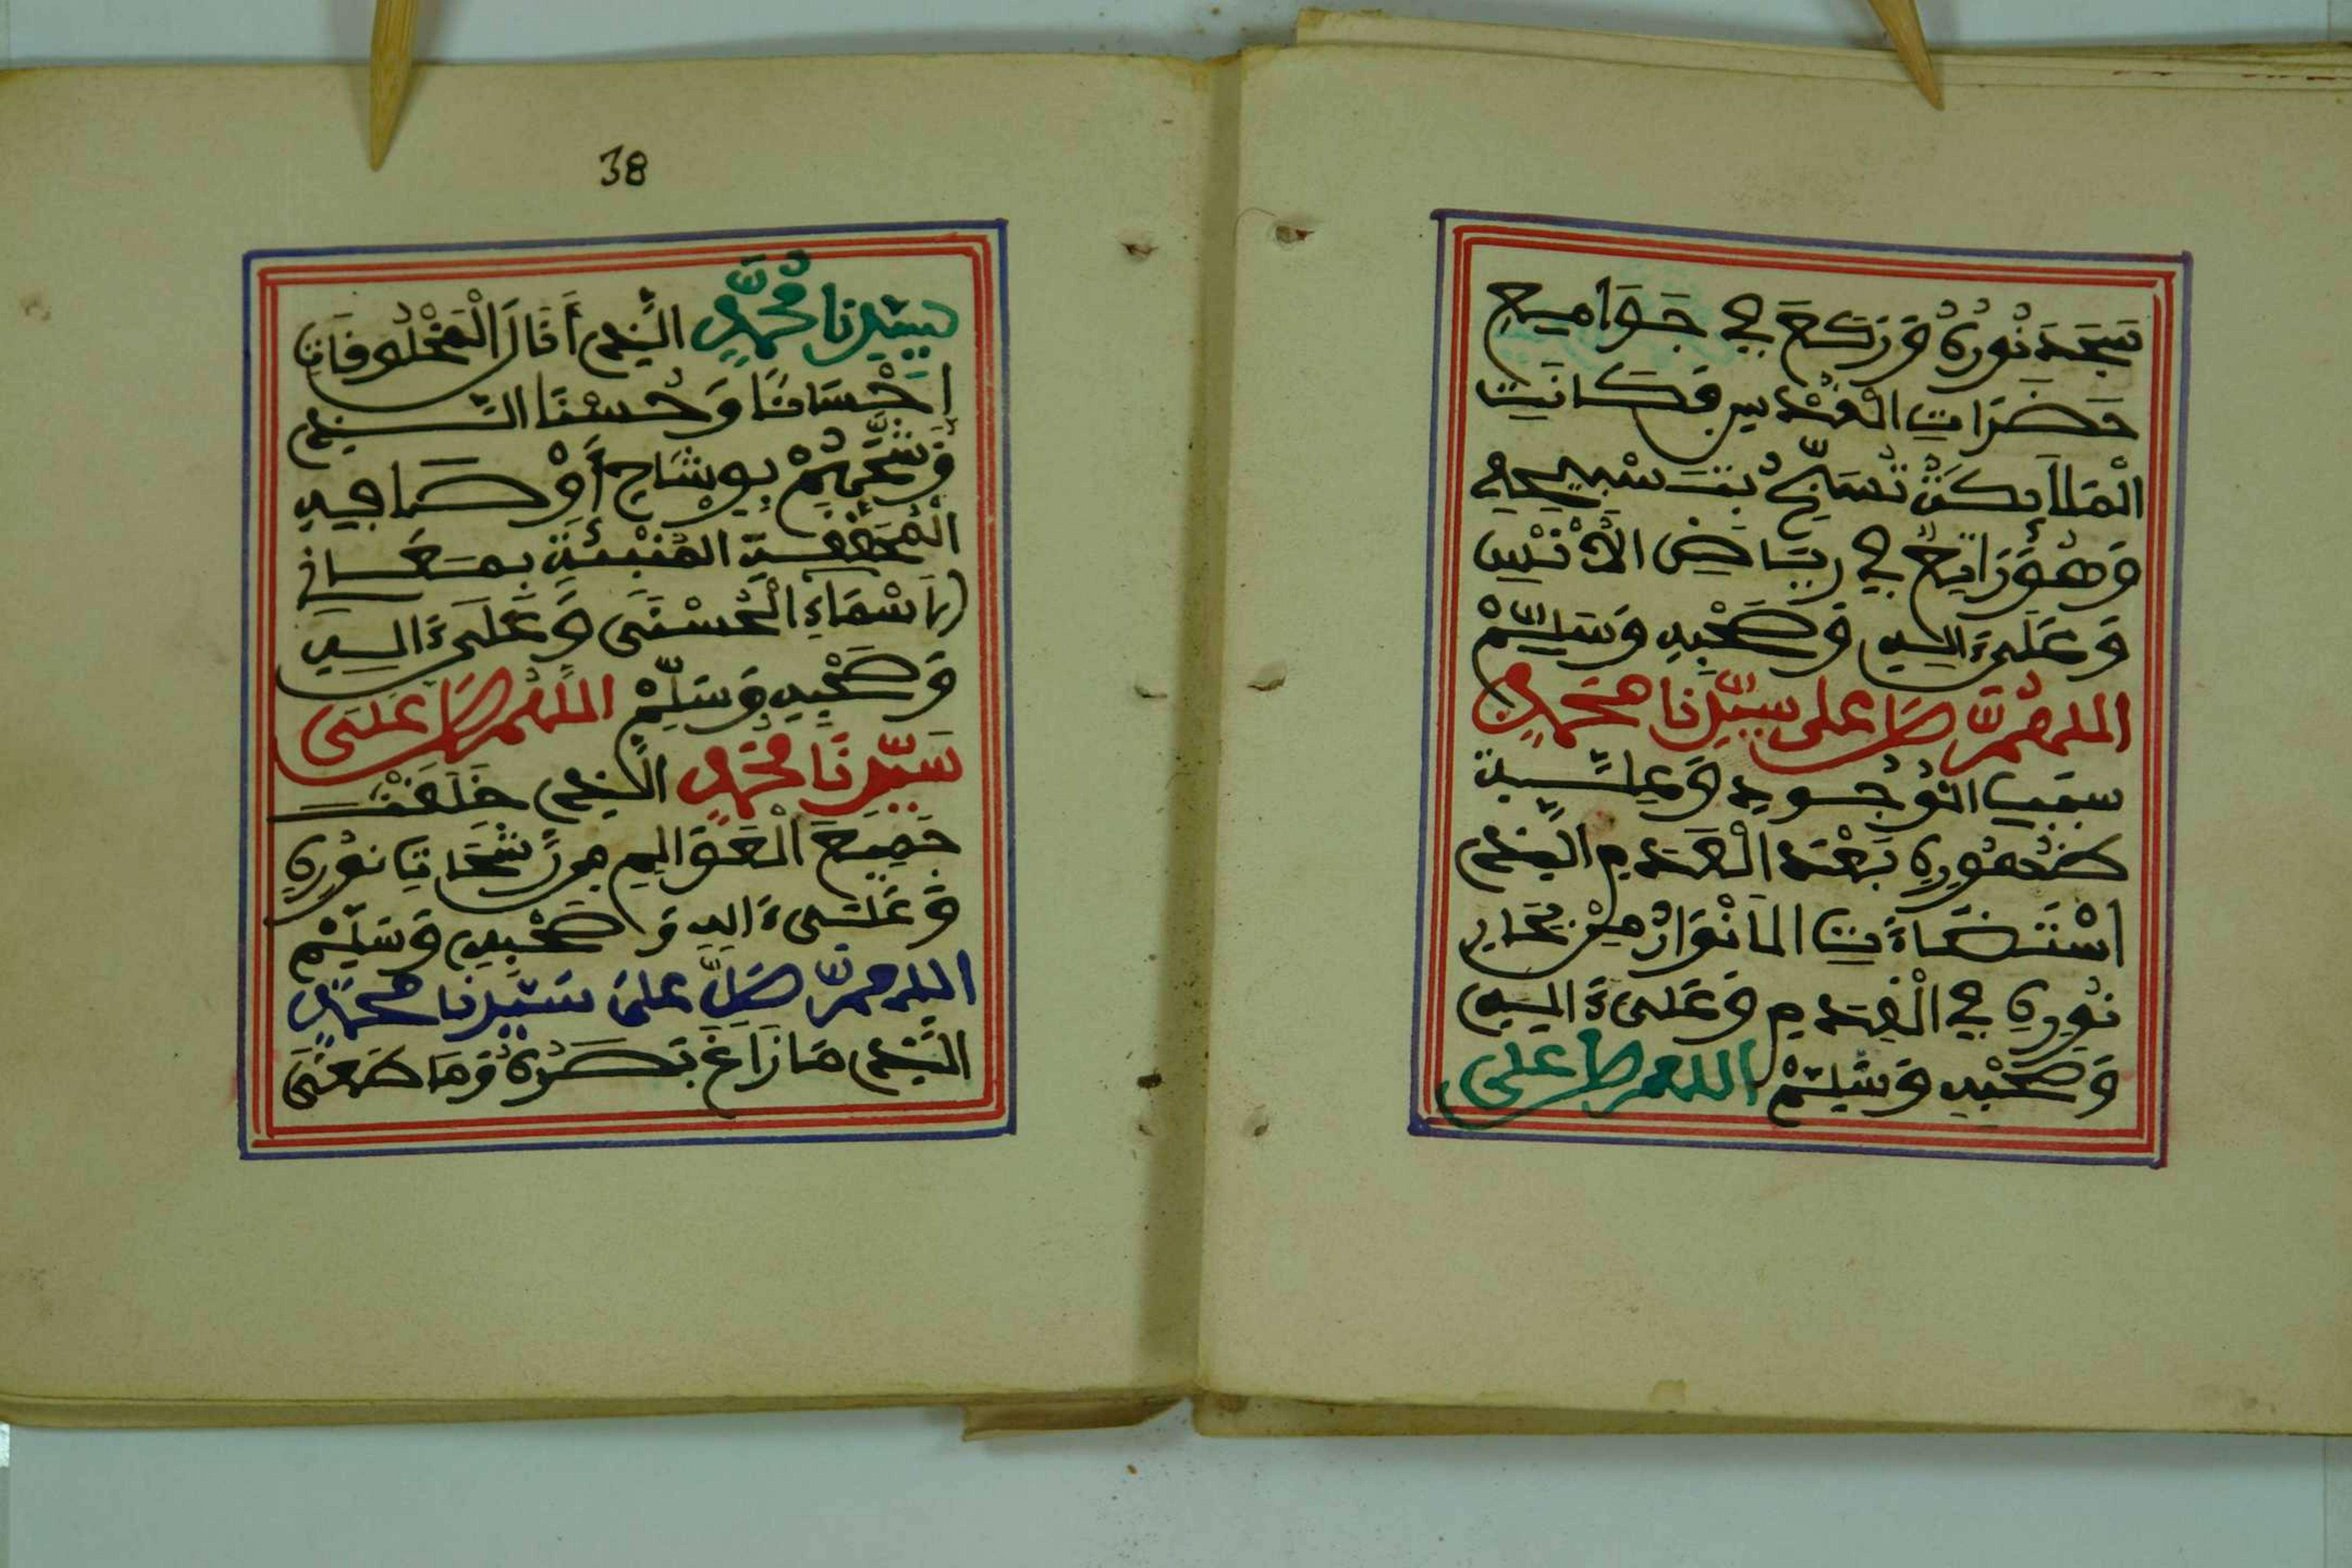 سَجَدَ نُورُهُ وَرَكَعَ فِي جَوَامِيعِ
حَضَرَاتِ الْقُدْسِ فَكَانَتِ
الْمَلَاۤئِكَةُ تُسَبِّحُ بِتَسْبِيحِهِ
وَهُوَ رَائِحٌ فِي رِيَاضِ الْأُنْسِ
وَعَلَىٰ ءَالِهِ وَصَحْبِهِ وَسَلِّمْ
اللهم صَلِّ على سيِّدِنا محَمَّدٍ
سَبَبِ الْوُجُودِ وَعِلَّةِ
ظُهُورِهِ بَعْدَ الْعَدَمِ الَّذِي
اسْتَضَاءَتِ الْأَنْوَارُ مِنْ بِحَارِ
نُورِهِ فِي الْقِدَمِ وَعَلَىٰ ءَالِهِ
وَصَحْبِهِ وَسَلِّمْ اللهم صل على
38
سيِّدِنا مُحَمَّدٍ الَّذِي أَنَالَ الْمَخْلُوقَاتِ
إِحْسَانًا وَحُسْنًا الَّذِي
وَشَّحْتَهُمْ بِوِشَاحِ أَوْصَافِهِ
الْمُصْطَفِيَّةِ الْمُنْبِئَةِ بِمَعَانِي
الْأَسْمَاءِ الْحُسْنَى وَعَلَىٰ ءَالِهِ
وَصَحْبِهِ وَسَلِّمْ اللهم صَلِّ عَلَى
سَيِّدِنَا مُحَمَّدٍ الَّذِي خَلَقْتَ
جَمِيعَ الْعَوَالِمِ مِن رَّشَحَاتِ نُورِهِ
وَعَلَىٰ ءَالِهِ وَصَحْبِهِ وَسَلِّمْ
اللهم صَلِّ علَى سَيِّدِنا محَمَّدٍ
الَّذِي مَا زَاغَ بَصَرُهُ وَمَا طَغَى